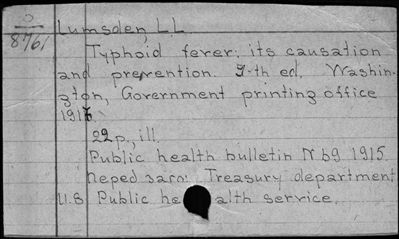 Lumsden, L L
8761
Typhoid fever; its causation
and prevention. 7-th ed. Washin-
gton, Government printing office
191
22 p., ill.
Public health bulletin N 69 1915.
Treasury department
U.S Public he alth service.